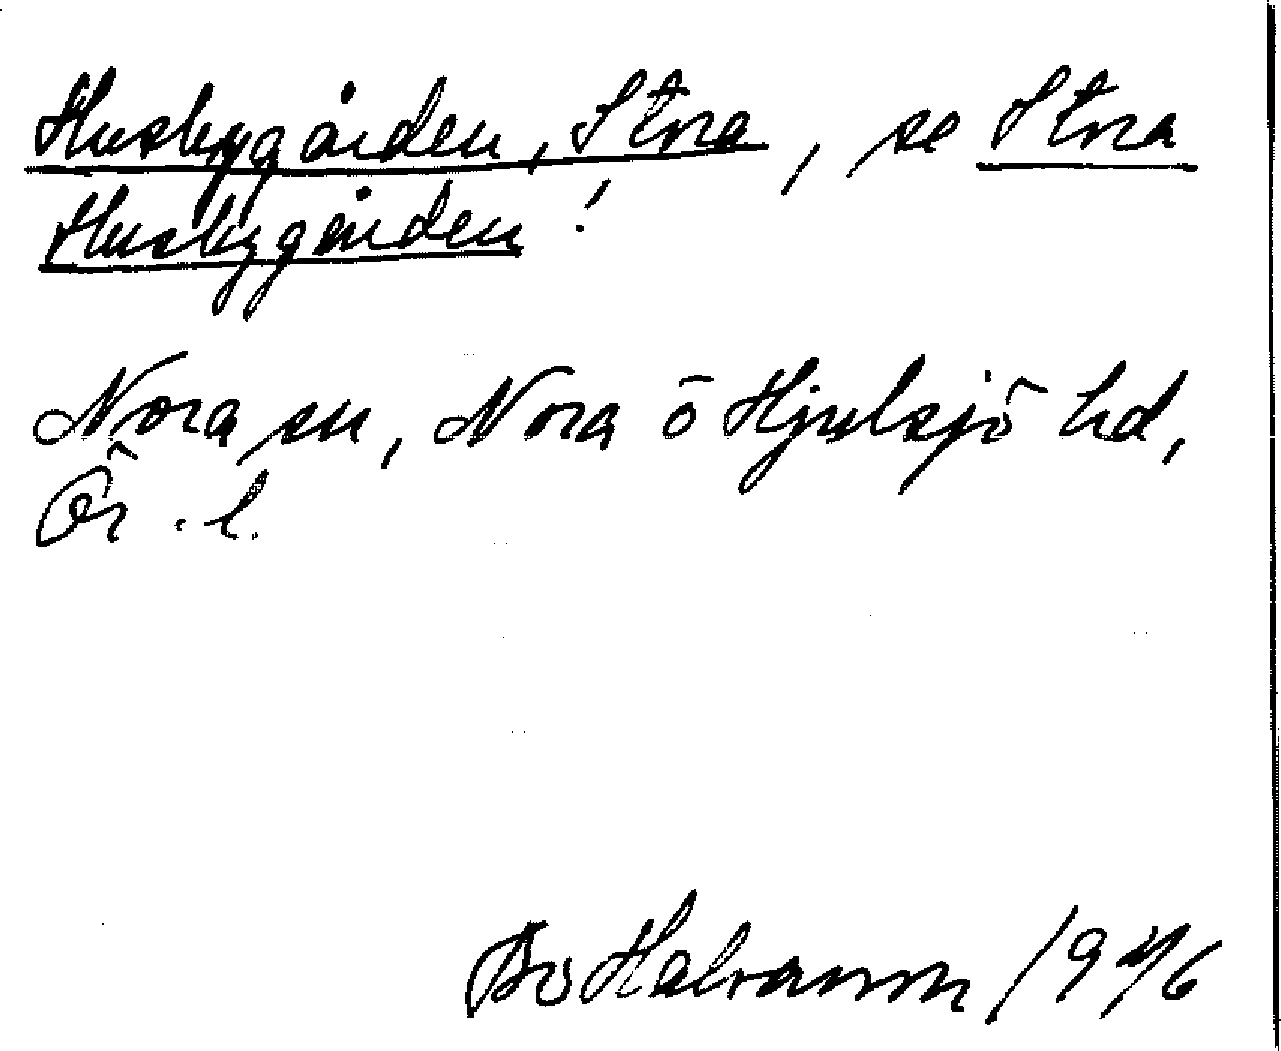 Husbygården, Stora, se Stora
Husbygården!
Nora sn, Nora o Hjulsjö hd,
Ör. l.
Bo Halvarsson 19